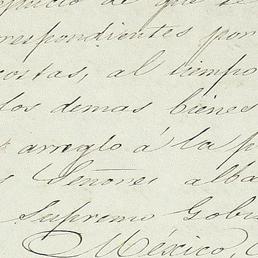 de que se
respondientes por
costas, al tiempo
los demas bienes
arreglo á la p
s Señores alba
Supremo Gobi
México,